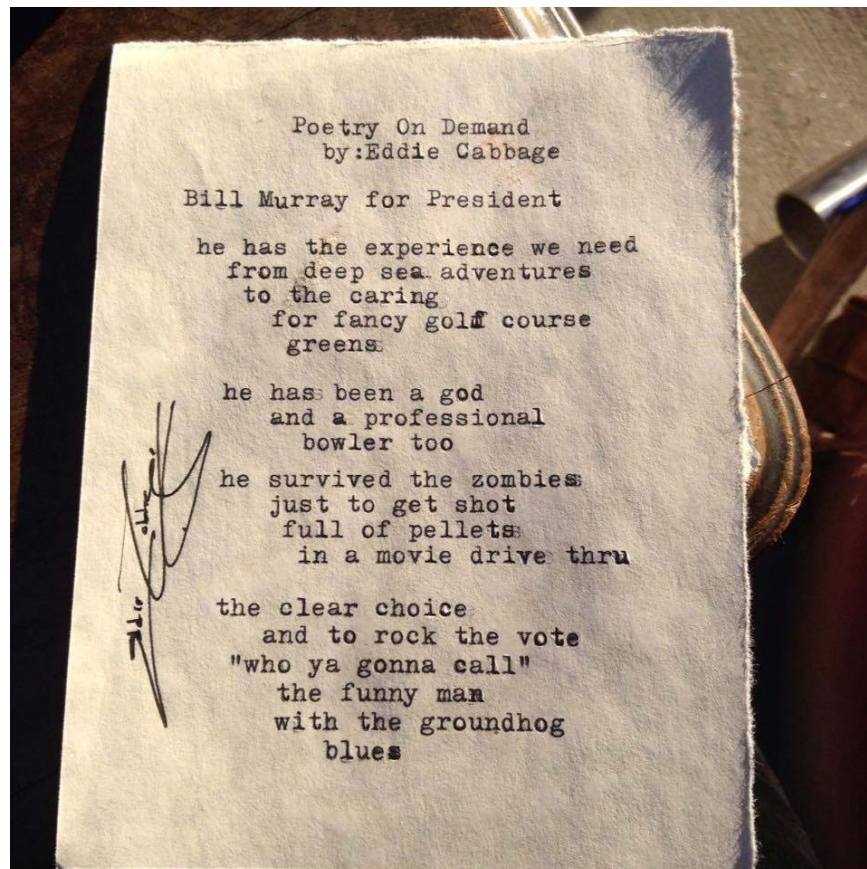 Poetry On Demand
by:Eddie Cabbage
Bill Murray for President
he has the experience we need
from deep sea adventures
to the caring
for fancy golf course
greens
he has been a god
and a professional
bowler too
he survived the zombies
just to get shot
full of pellets
in a movie drive thru
the clear choice
and to rock the vote
"who ya gonna call"
the funny man
with the groundhog
blues